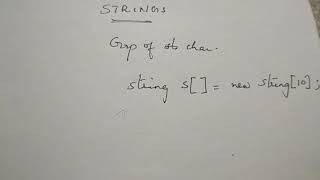 STRINGS
Grop of char.
string s[] = new string[10];